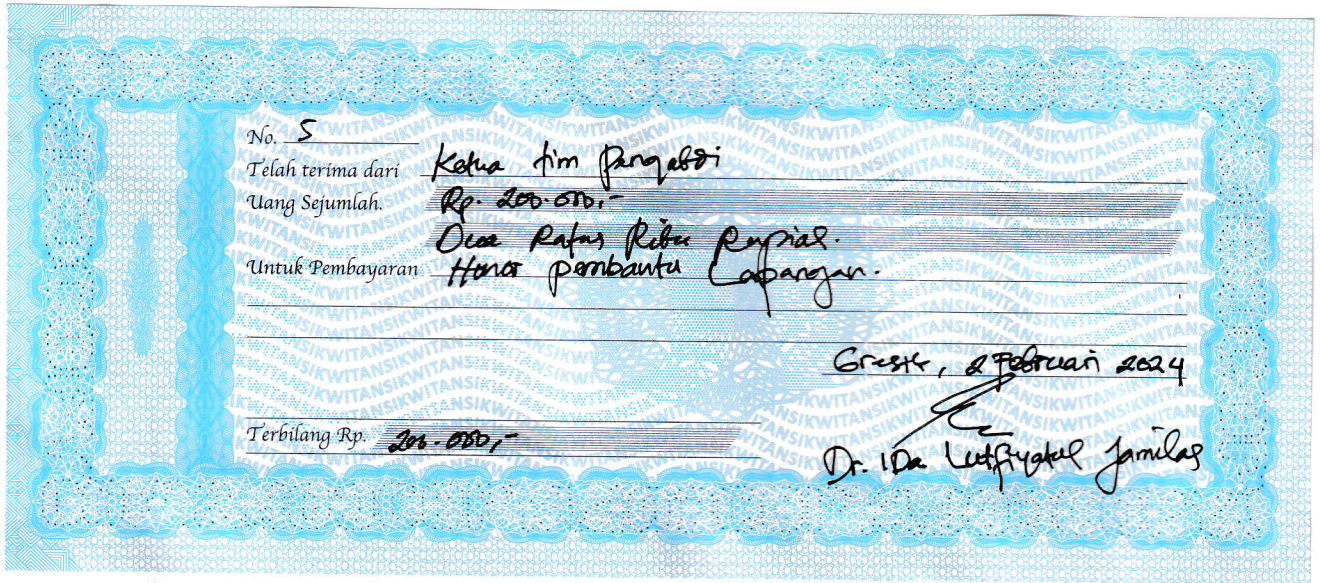 No. 5
Telah terima dari Ketua tim Pengabdi
Uang Sejumlah. Rp. 200.000,-
Dua Ratus Ribu Rupiah.
Untuk Pembayaran Honor pembantu Lapangan.
Gresik, 2 Februari 2024
Terbilang Rp. 200.000,-
Dr. Ida Lutfiyatul Jamilah